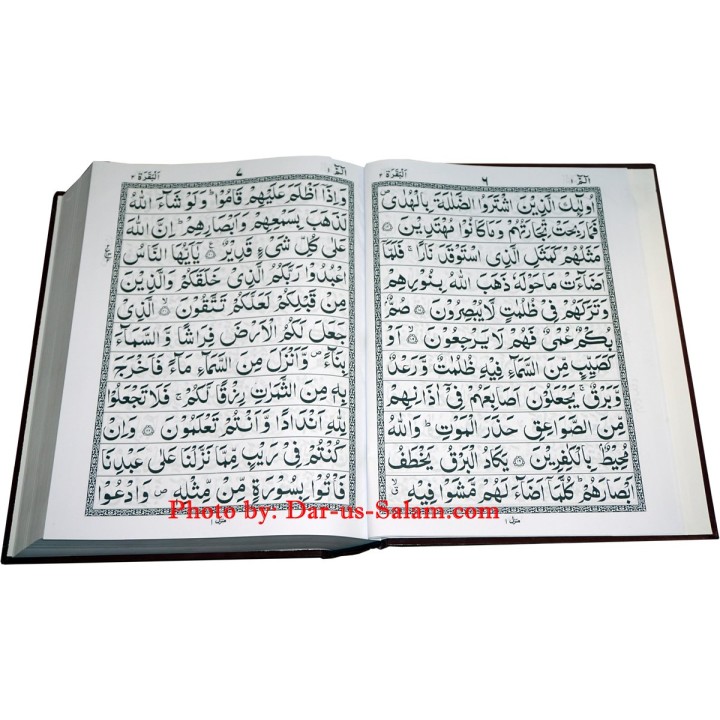 الٓمّٓ ۱ ٦ الْبَقَرَة ۲
اُولٰٓئِكَ الَّذِيْنَ اشْتَرَوُا الضَّلٰلَةَ بِالْهُدٰى ص
فَمَا رَبِحَتْ تِّجَارَتُهُمْ وَمَا كَانُوْا مُهْتَدِيْنَ ﴿۱۶﴾
مَثَلُهُمْ كَمَثَلِ الَّذِى اسْتَوْقَدَ نَارًا ۚ فَلَمَّآ
اَضَآءَتْ مَا حَوْلَهٗ ذَهَبَ اللّٰهُ بِنُوْرِهِمْ
وَتَرَكَهُمْ فِيْ ظُلُمٰتٍ لَّا يُبْصِرُوْنَ ﴿۱۷﴾ صُمٌّۢ
بُكْمٌ عُمْيٌ فَهُمْ لَا يَرْجِعُوْنَ ﴿۱۸﴾ اَوْ
كَصَيِّبٍ مِّنَ السَّمَآءِ فِيْهِ ظُلُمٰتٌ وَّرَعْدٌ
وَّبَرْقٌ ۚ يَجْعَلُوْنَ اَصَابِعَهُمْ فِيْٓ اٰذَانِهِمْ
مِّنَ الصَّوَاعِقِ حَذَرَ الْمَوْتِ ؕ وَاللّٰهُ
مُحِيْطٌۢ بِالْكٰفِرِيْنَ ﴿۱۹﴾ يَكَادُ الْبَرْقُ يَخْطَفُ
اَبْصَارَهُمْ ؕ كُلَّمَآ اَضَآءَ لَهُمْ مَّشَوْا فِيْهِ ق
منزل ۱
الٓمّٓ ۱ ۷ الْبَقَرَة ۲
وَاِذَآ اَظْلَمَ عَلَيْهِمْ قَامُوْا ؕ وَلَوْ شَآءَ اللّٰهُ
لَذَهَبَ بِسَمْعِهِمْ وَاَبْصَارِهِمْ ؕ اِنَّ اللّٰهَ
عَلٰى كُلِّ شَيْءٍ قَدِيْرٌ ﴿۲۰﴾ يٰٓاَيُّهَا النَّاسُ
اعْبُدُوْا رَبَّكُمُ الَّذِيْ خَلَقَكُمْ وَالَّذِيْنَ
مِنْ قَبْلِكُمْ لَعَلَّكُمْ تَتَّقُوْنَ ﴿۲۱﴾ الَّذِيْ
جَعَلَ لَكُمُ الْاَرْضَ فِرَاشًا وَّالسَّمَآءَ
بِنَآءً ص وَّاَنْزَلَ مِنَ السَّمَآءِ مَآءً فَاَخْرَجَ
بِهٖ مِنَ الثَّمَرٰتِ رِزْقًا لَّكُمْ ۚ فَلَا تَجْعَلُوْا
لِلّٰهِ اَنْدَادًا وَّاَنْتُمْ تَعْلَمُوْنَ ﴿۲۲﴾ وَاِنْ
كُنْتُمْ فِيْ رَيْبٍ مِّمَّا نَزَّلْنَا عَلٰى عَبْدِنَا
فَاْتُوْا بِسُوْرَةٍ مِّنْ مِّثْلِهٖ ص وَادْعُوْا
منزل ۱
Photo by: Dar-us-Salam.com